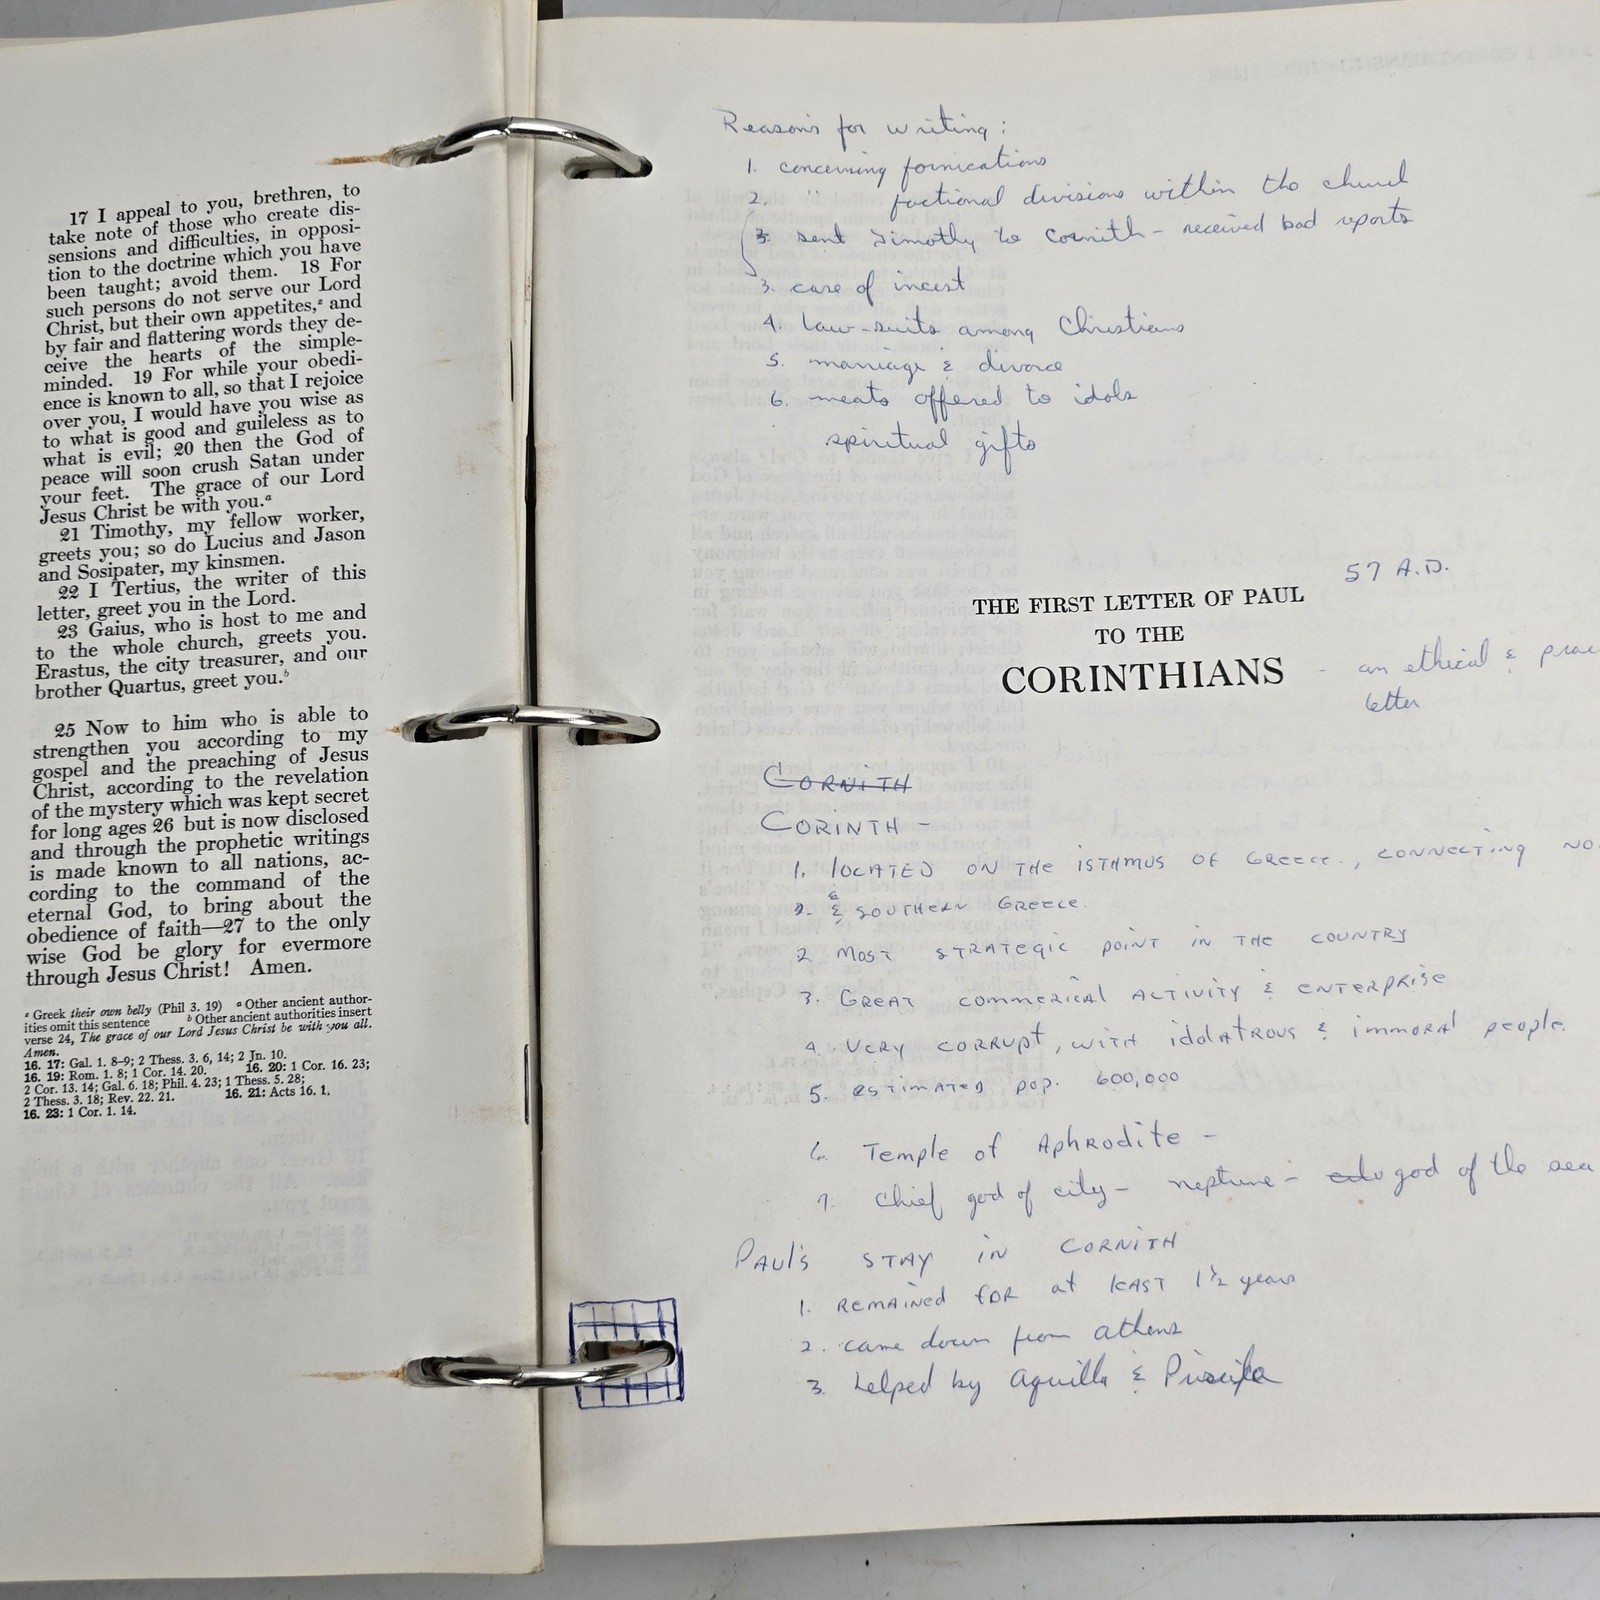 17 I appeal to you, brethren, to
take note of those who create dis-
sensions and difficulties, in opposi-
tion to the doctrine which you have
been taught; avoid them. 18 For
such persons do not serve our Lord
Christ, but their own appetites,ᶻ and
by fair and flattering words they de-
ceive the hearts of the simple-
minded. 19 For while your obedi-
ence is known to all, so that I rejoice
over you, I would have you wise as
to what is good and guileless as to
what is evil; 20 then the God of
peace will soon crush Satan under
your feet. The grace of our Lord
Jesus Christ be with you.ᵃ
21 Timothy, my fellow worker,
greets you; so do Lucius and Jason
and Sosipater, my kinsmen.
22 I Tertius, the writer of this
letter, greet you in the Lord.
23 Gaius, who is host to me and
to the whole church, greets you.
Erastus, the city treasurer, and our
brother Quartus, greet you.ᵇ
25 Now to him who is able to
strengthen you according to my
gospel and the preaching of Jesus
Christ, according to the revelation
of the mystery which was kept secret
for long ages 26 but is now disclosed
and through the prophetic writings
is made known to all nations, ac-
cording to the command of the
eternal God, to bring about the
obedience of faith—27 to the only
wise God be glory for evermore
through Jesus Christ! Amen.
ᶻ Greek their own belly (Phil 3. 19) ᵃ Other ancient author-
ities omit this sentence ᵇ Other ancient authorities insert
verse 24, The grace of our Lord Jesus Christ be with you all.
Amen.
16. 17: Gal. 1. 8-9; 2 Thess. 3. 6, 14; 2 Jn. 10.
16. 19: Rom. 1. 8; 1 Cor. 14. 20. 16. 20: 1 Cor. 16. 23;
2 Cor. 13. 14; Gal. 6. 18; Phil. 4. 23; 1 Thess. 5. 28;
2 Thess. 3. 18; Rev. 22. 21. 16. 21: Acts 16. 1.
16. 23: 1 Cor. 1. 14.
Reasons for writing:
1. concerning fornications
2. " factional divisions within the church
3. sent Timothy to Cornith - received bad reports
3. case of incest
4. law-suits among Christians
5. marriage & divorce
6. meats offered to idols
spiritual gifts
57 A.D.
THE FIRST LETTER OF PAUL
TO THE
CORINTHIANS - an ethical &
letter
CORNITH
CORINTH -
1. LOCATED ON THE ISTHMUS OF GREECE., CONNECTING NO.
2. & & SOUTHERN GREECE.
2 MOST STRATEGIC POINT IN THE COUNTRY
3. GREAT COMMERICAL ACTIVITY & ENTERPRISE
4. VERY CORRUPT, WITH IDOLATROUS & IMMORAL PEOPLE.
5. ESTIMATED POP. 600,000
6. Temple of Aphrodite -
7. Chief god of city - neptune - god of the sea
PAUL'S STAY IN CORNITH
1. REMAINED FOR at LEAST 1½ years
2. came down from athens
3. helped by Aquilla & Priscila